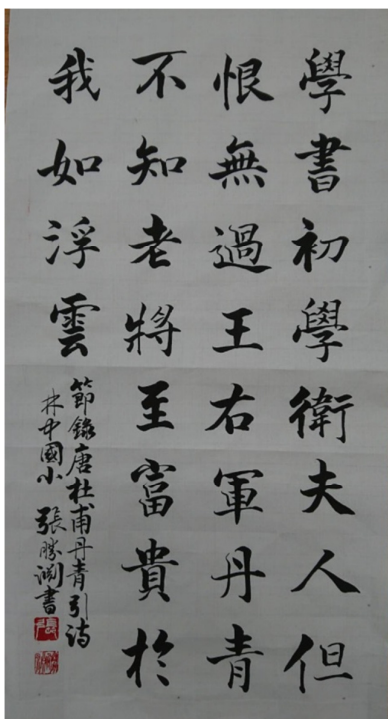 學書初學衛夫人但
恨無過王右軍丹青
不知老將至富貴於
我如浮雲
節錄唐杜甫丹青引詩
林中國小 張勝淵書